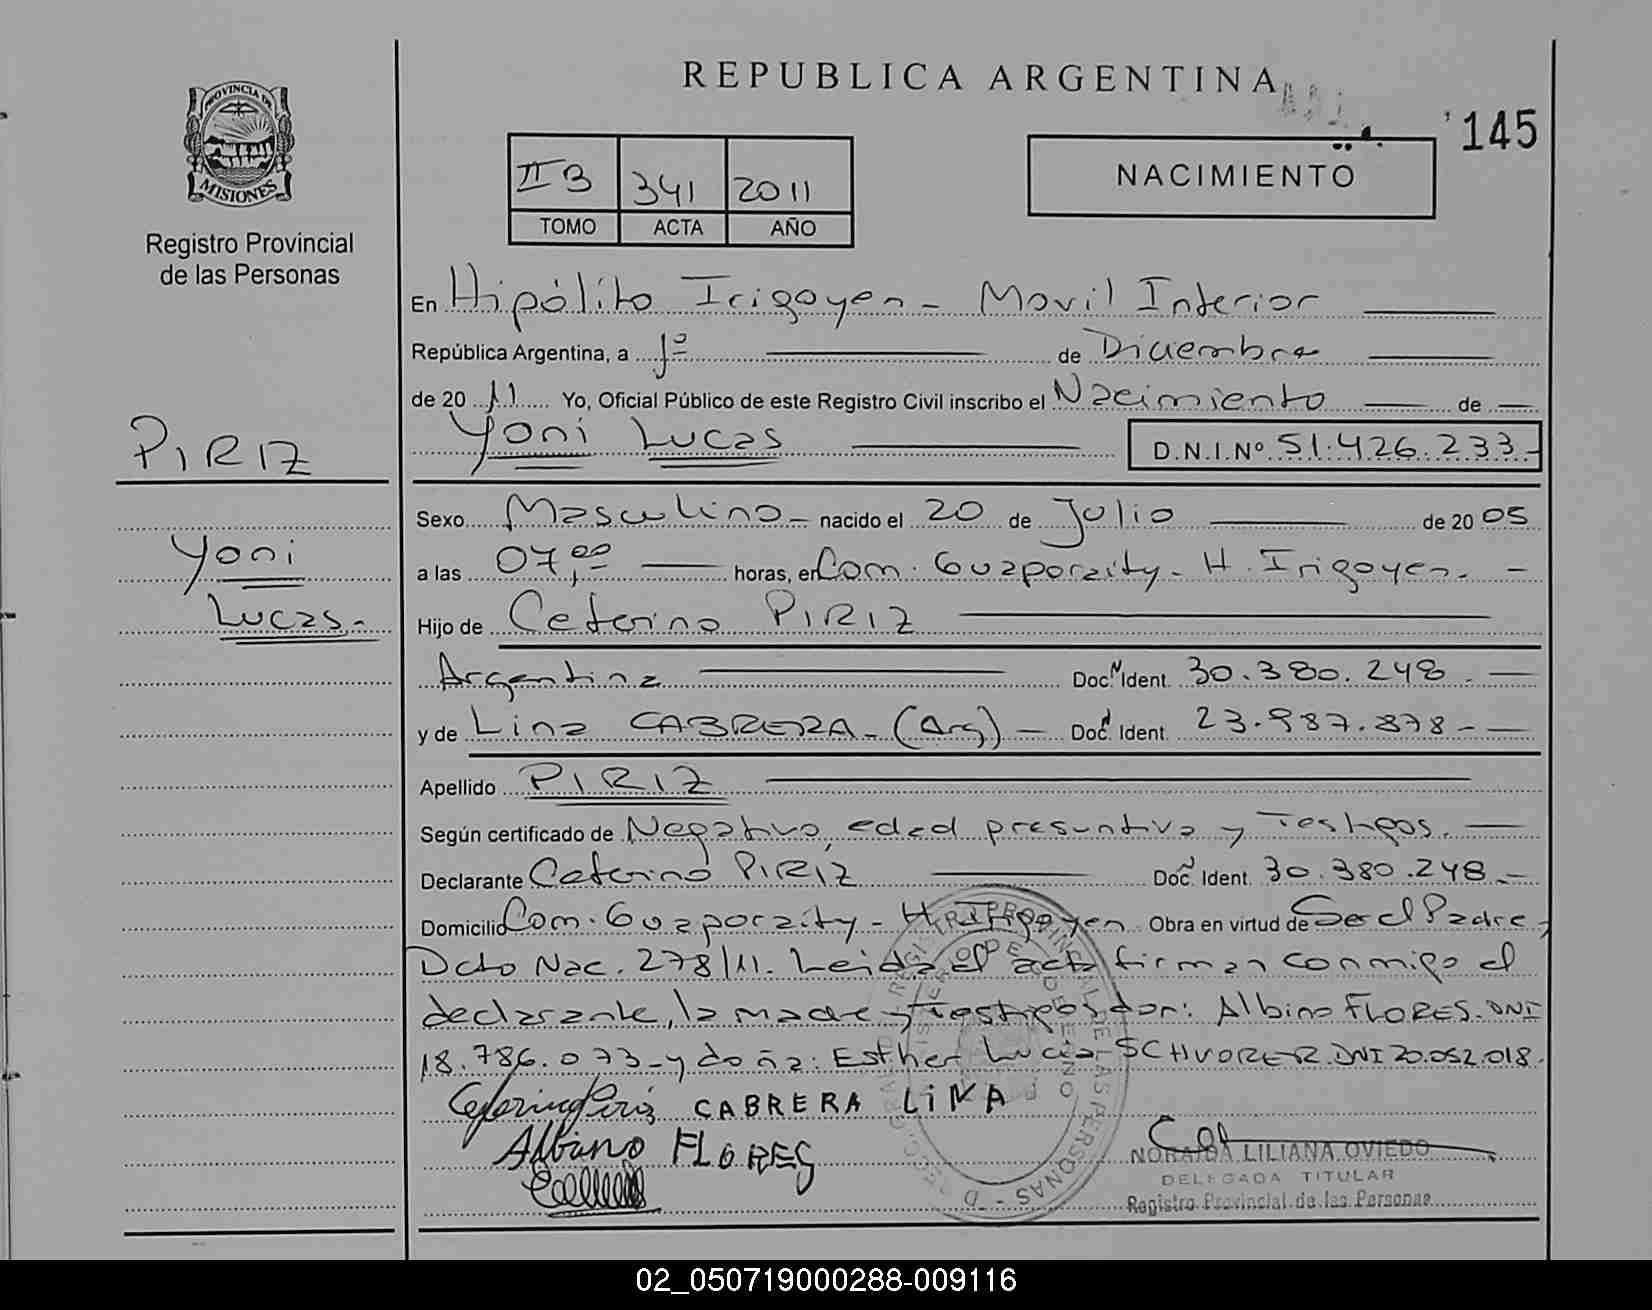 REPUBLICA ARGENTINA
145
PROVINCIA DE
MISIONES
Registro Provincial
de las Personas
II B 341 2011
TOMO ACTA AÑO
NACIMIENTO
En Hipólito Irigoyen - Movil Interior
República Argentina, a 1º de Diciembre
de 20 11 Yo, Oficial Público de este Registro Civil inscribo el Nacimiento de
Yoni Lucas D.N.I.Nº 51.426.233.-
PIRIZ
Yoni
Lucas.-
Sexo Masculino - nacido el 20 de Julio de 20 05
a las 07,00 horas, en Com. Guaporaity - H. Irigoyen. -
Hijo de Ceferino PIRIZ
Argentina Doc. Ident. 30.380.248. -
y de Lina CABRERA - (Arg) - Doc. Ident. 23.987.878 - -
Apellido PIRIZ
Según certificado de Negativo, edad presuntiva y Testigos. -
Declarante Ceferino PIRIZ Doc. Ident. 30.380.248. -
Domicilio Com. Guaporaity - H. Irigoyen Obra en virtud de Ser el Padre,
Dcto Nac. 278/11. Leida el acta firman conmigo el
declarante, la madre y Testigos don: Albino FLORES. DNI
18.786.073 - y doña: Esther Lucia SCHVORER. DNI 20.052.018.
Ceferino Piriz CABRERA LiNA
Albino FLORES
NORAIDA LILIANA OVIEDO
DELEGADA TITULAR
Registro Provincial de las Personas
02_050719000288-009116